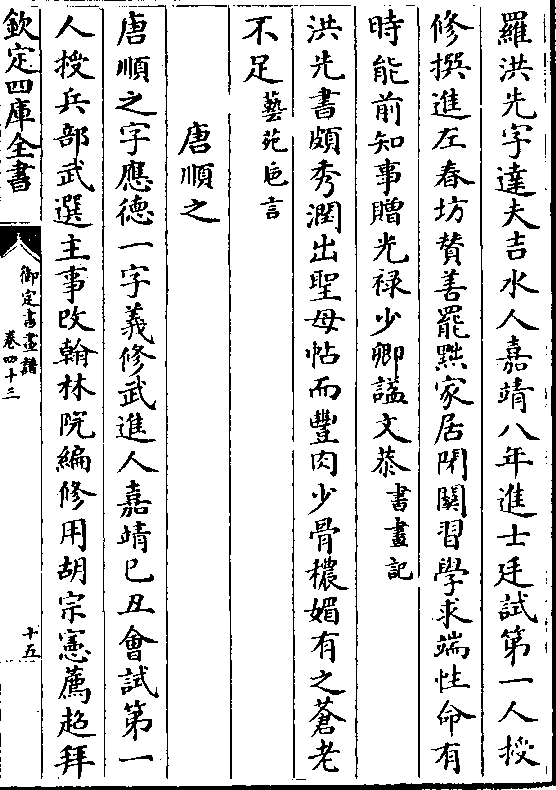 羅洪先字達夫吉水人嘉靖八年進士廷試第一人授
修撰進左春坊賛善罷黜家居閉關習學求端性命有
時能前知事贈光祿少卿諡文恭書畫記
洪先書頗秀潤出聖母帖而豐肉少骨穠媚有之蒼老
不足藝苑巵言
唐順之
唐順之字應德一字義修武進人嘉靖己丑會試第一
人授兵部武選主事改翰林院編修用胡宗憲薦超拜
欽定四庫全書
御定書畫譜
卷四十三
十五